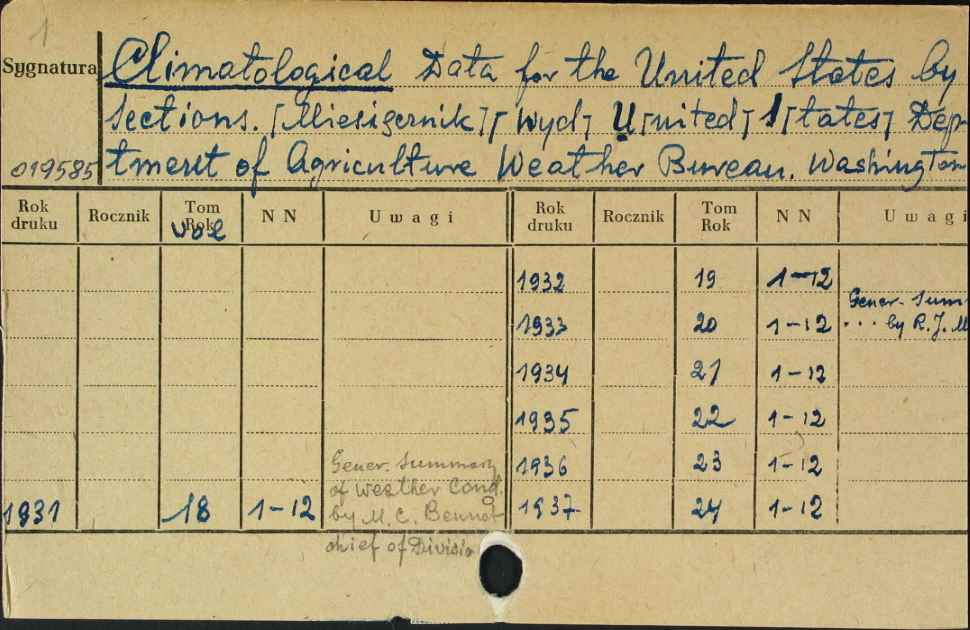 1
Sygnatura Climatological Data for the United States by
sections. [Miesięcznik] [wyd] U[nited] S[tates] Dep
019585 tment of Agriculture Weather Bureau. Washington
Rok druku Rocznik Tom Rok vol NN Uwagi Rok druku Rocznik Tom Rok NN Uwagi
1932 19 1-12
Gener. Summ
1933 20 1-12 ... by R.J. M
1934 21 1-12
1935 22 1-12
Gener. Summary 1936 23 1-12
of Weather Cond.
1931 18 1-12 by M.C. Bennot 1937 24 1-12
chief of Divisio